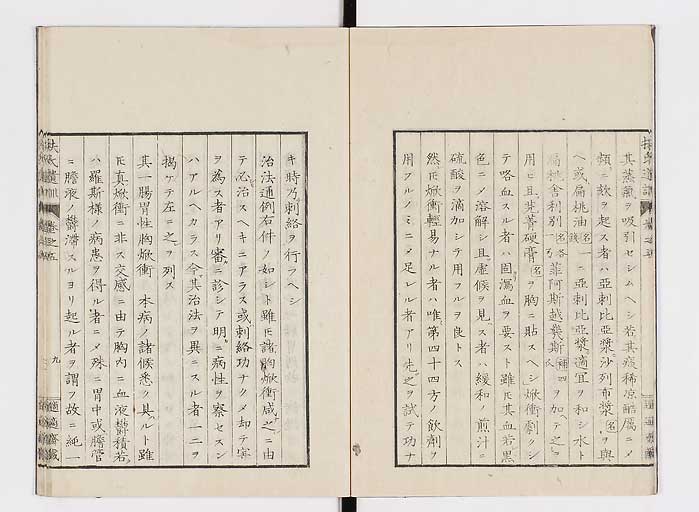 其蒸氣ヲ吸引セシムヘシ若其痰稀凉酷厲ニメ
頻ニ欬ヲ起ス者ハ亞剌比亞漿沙列布漿名ヲ與
ヘ或扁桃油名一錢ニ亞剌比亞漿適宜ヲ和シ水ト
舎利別名各一弓菲阿斯越幾斯補四ヲ加ヘテ之
用ヒ且莨菪硬膏名ヲ胸ニ貼スヘシ焮衝劇クシ
テ咯血スル者ハ固瀉血ヲ要スト雖𪜈其血若黒
色ニメ溶解シ且虚候ヲ見ス者ハ緩和ノ煎汁ニ
硫酸ヲ滴加シテ用フルヲ良トス
然𪜈焮衝輕易ナル者ハ唯第四十四方ノ飲劑ヲ
用フルノミニメ足レル者アリ先之ヲ試テ功ナ
キ時乃刺絡ヲ行フヘシ
治法通例右件ノ如シト雖𪜈諸胸焮衝咸之ニ由
テ必治スヘキニアラス或刺絡功ナクメ却テ害
ヲ為ス者アリ審ニ診シテ明ニ病性ヲ察セスン
ハアルヘカラス今其治法ヲ異ニスル者一二ヲ
揭ケテ左ニ之ヲ列ス
其一腸胃性胸焮衝 本病ノ諸候悉ク具ルト雖
𪜈真焮衝ニ非ス交感ニ由テ胸内ニ血液鬱積若
ハ羅斯様ノ病患ヲ得ル者ニメ殊ニ胃中或膽管
ニ膽液ノ鬱滞スルヨリ起ル者ヲ謂フ故ニ純一
扶氏遺訓 卷之五
九
適適齋藏